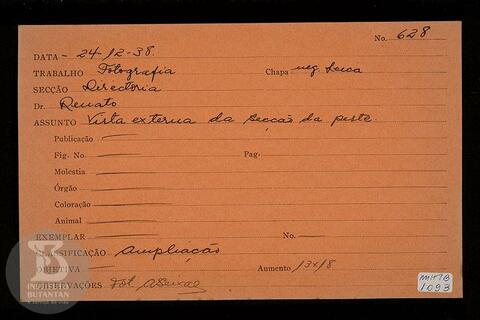 No. 628
DATA - 24-12-38.
TRABALHO Fotografia Chapa neg. Leica
SECÇÃO Directoria
Dr. Renato
ASSUNTO Vista externa da secção da peste
Publicação
Fig. No. Pag.
Molestia
Órgão
Coloração
Animal
EXEMPLAR No.
CLASSIFICAÇÃO Ampliação
OBJETIVA Aumento 13x18
OBSERVAÇÕES Fot.
MHTB
1093
INSTITUTO
BUTANTAN